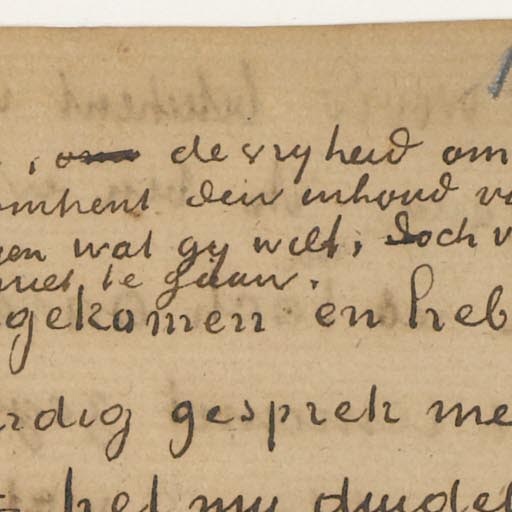 , de vryheid om
omtrent den inhoud v
en wat gy wilt, doch v
niet te gaan.
gekomen en heb
rdig gesprek me
het my duidel